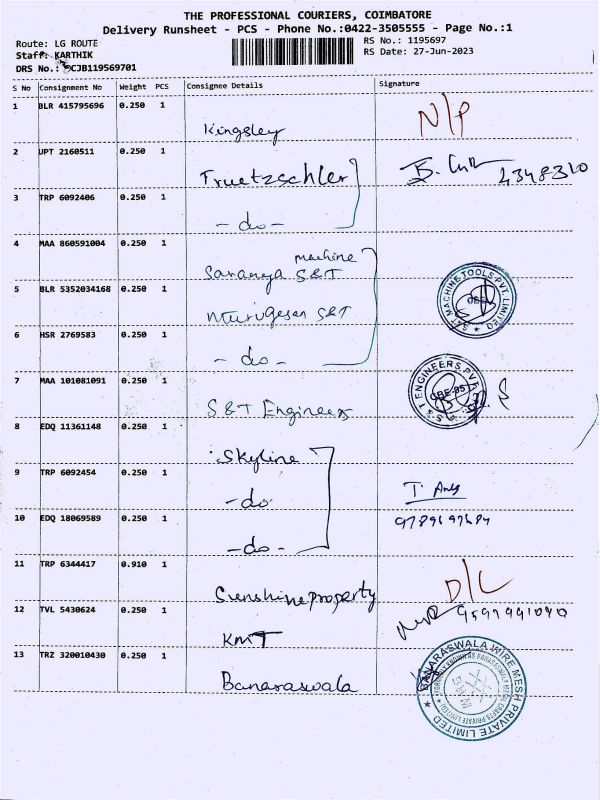 THE PROFESSIONAL COURIERS, COIMBATORE
Delivery Runsheet - PCS - Phone No.:0422-3505555 - Page No.:1
Route: LG ROUTE
RS No.: 1195697
Staff: KARTHIK
RS Date: 27-Jun-2023
DRS No.: CJB119569701
S No Consignment No Weight PCS Consignee Details Signature
1 BLR 415795696 0.250 1
Kingsley N/P
2 UPT 2160511 0.250 1
Truetzschler 4348310
3 TRP 6092406 0.250 1
- do -
4 MAA 860591004 0.250 1
machine
Saranya S&T
5 BLR 5352034168 0.250 1
Murugesan S&T
S&T MACHINE TOOLS PVT. LIMITED
6 HSR 2769583 0.250 1
- do -
7 MAA 101081091 0.250 1
S&T Engineers
S & T ENGINEERS PVT.
CBE-05
8 EDQ 11361148 0.250 1
Skyline
9 TRP 6092454 0.250 1
- do -
10 EDQ 18069589 0.250 1
- do -
11 TRP 6344417 0.910 1
Sunshine property D/L
12 TVL 5430624 0.250 1
KMT
13 TRZ 320010430 0.250 1
Banaraswala
BANARASWALA WIRE MESH PRIVATE LIMITED